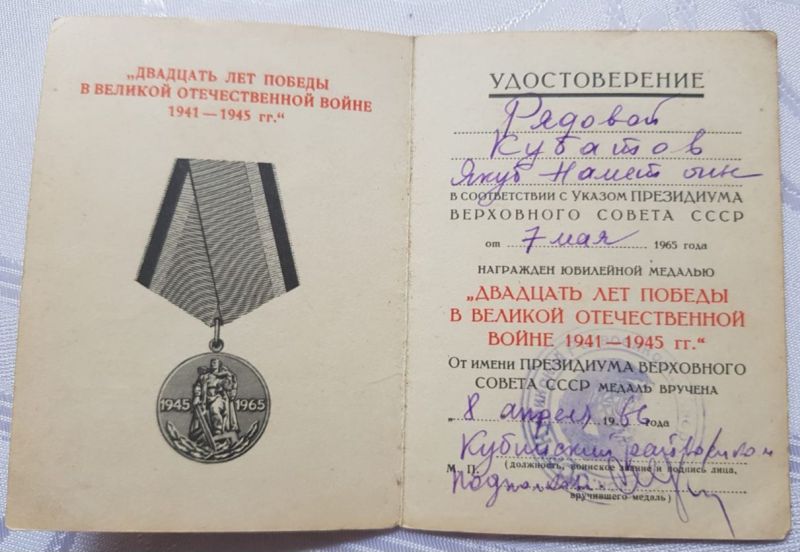 „ДВАДЦАТЬ ЛЕТ ПОБЕДЫ
В ВЕЛИКОЙ ОТЕЧЕСТВЕННОЙ ВОЙНЕ
1941—1945 гг.“
1945 1965
УДОСТОВЕРЕНИЕ
Рядовой
Кубатов
Якуб Намет оглы
В СООТВЕТСТВИИ С УКАЗОМ ПРЕЗИДИУМА
ВЕРХОВНОГО СОВЕТА СССР
от 7 мая 1965 года
НАГРАЖДЕН ЮБИЛЕЙНОЙ МЕДАЛЬЮ
„ДВАДЦАТЬ ЛЕТ ПОБЕДЫ
В ВЕЛИКОЙ ОТЕЧЕСТВЕННОЙ
ВОЙНЕ 1941—1945 гг.“
ОТ ИМЕНИ ПРЕЗИДИУМА ВЕРХОВНОГО
СОВЕТА СССР МЕДАЛЬ ВРУЧЕНА
„8 апреля 1966 года
райвоенком
М. П. (должность, воинское звание и подпись лица,
вручившего медаль)